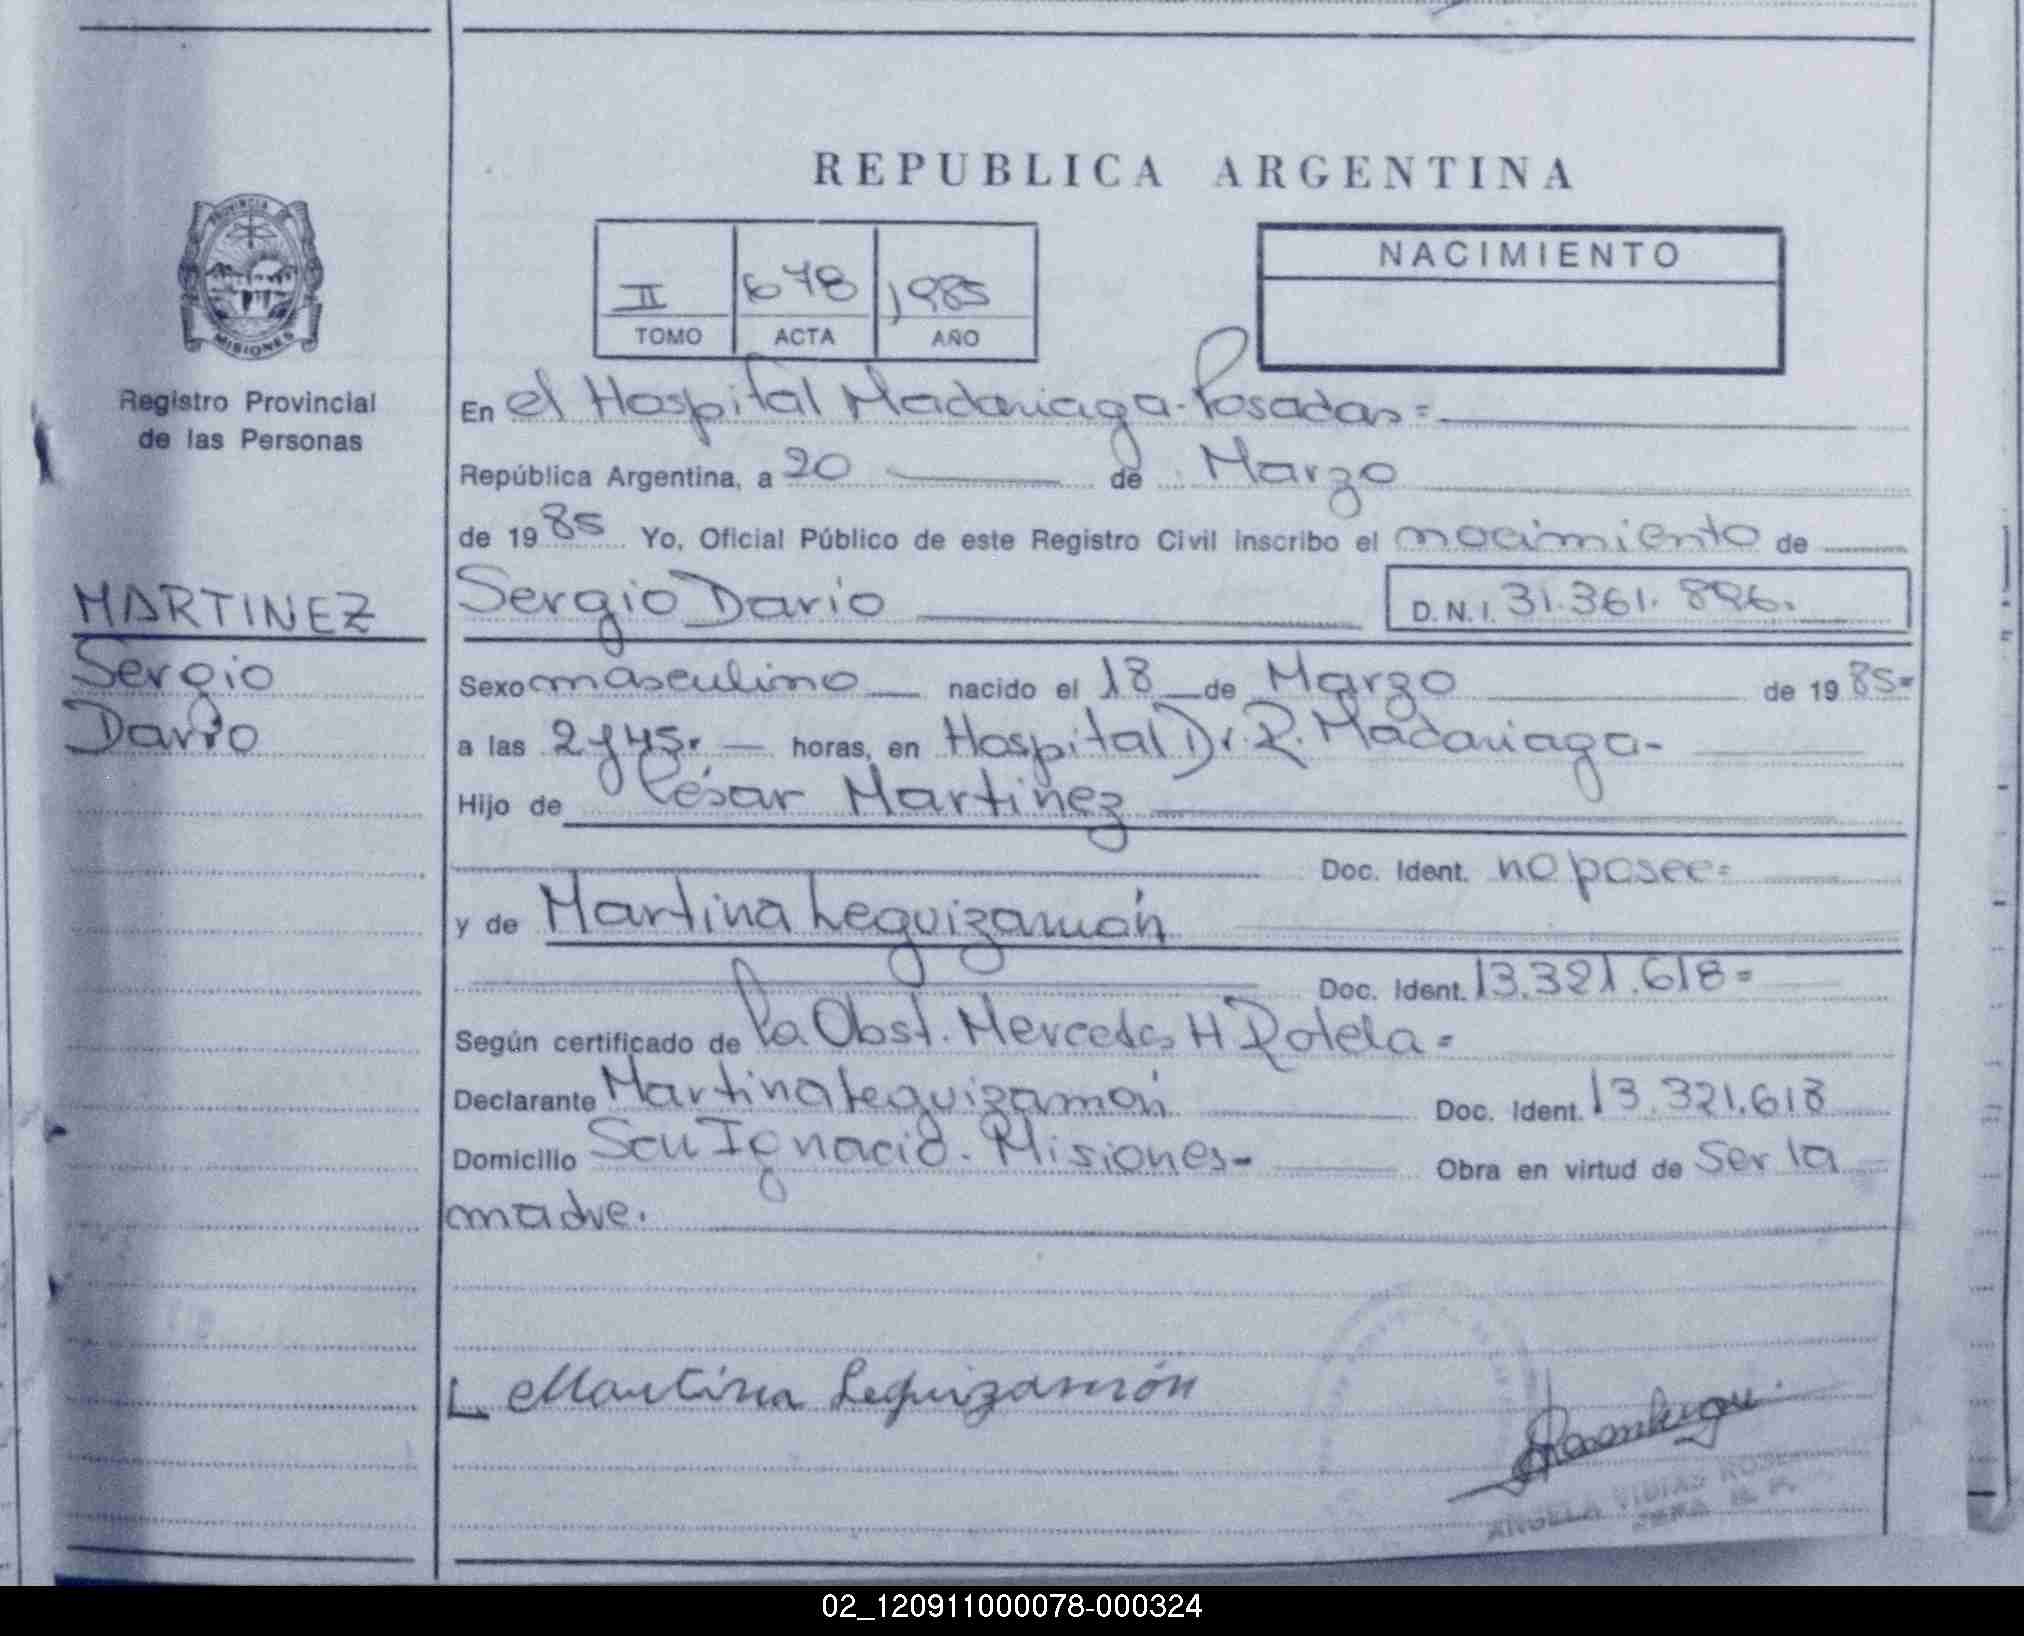 REPUBLICA ARGENTINA
PROVINCIA DE
MISIONES
Registro Provincial
de las Personas
II 678 1985
TOMO ACTA AÑO
NACIMIENTO
En el Hospital Madariaga-Posadas=
República Argentina, a 20 de Marzo
de 1985 Yo, Oficial Público de este Registro Civil inscribo el nacimiento de
MARTINEZ
Sergio
Darío
Sergio Darío D.N.I. 31.361.896.
Sexo masculino nacido el 18 de Marzo de 1985=
a las 2 y 45. horas, en Hospital Dr. R. Madariaga-
Hijo de César Martinez
Doc. Ident. no posee=
y de Martina Leguizamón
Doc. Ident. 13.321.618=
Según certificado de la Obst. Mercedes H Rotela=
Declarante Martina Leguizamón Doc. Ident. 13.321.618
Domicilio San Ignacio. Misiones- Obra en virtud de Ser la
madre.
Martina Leguizamón
ANGELA
02_120911000078-000324